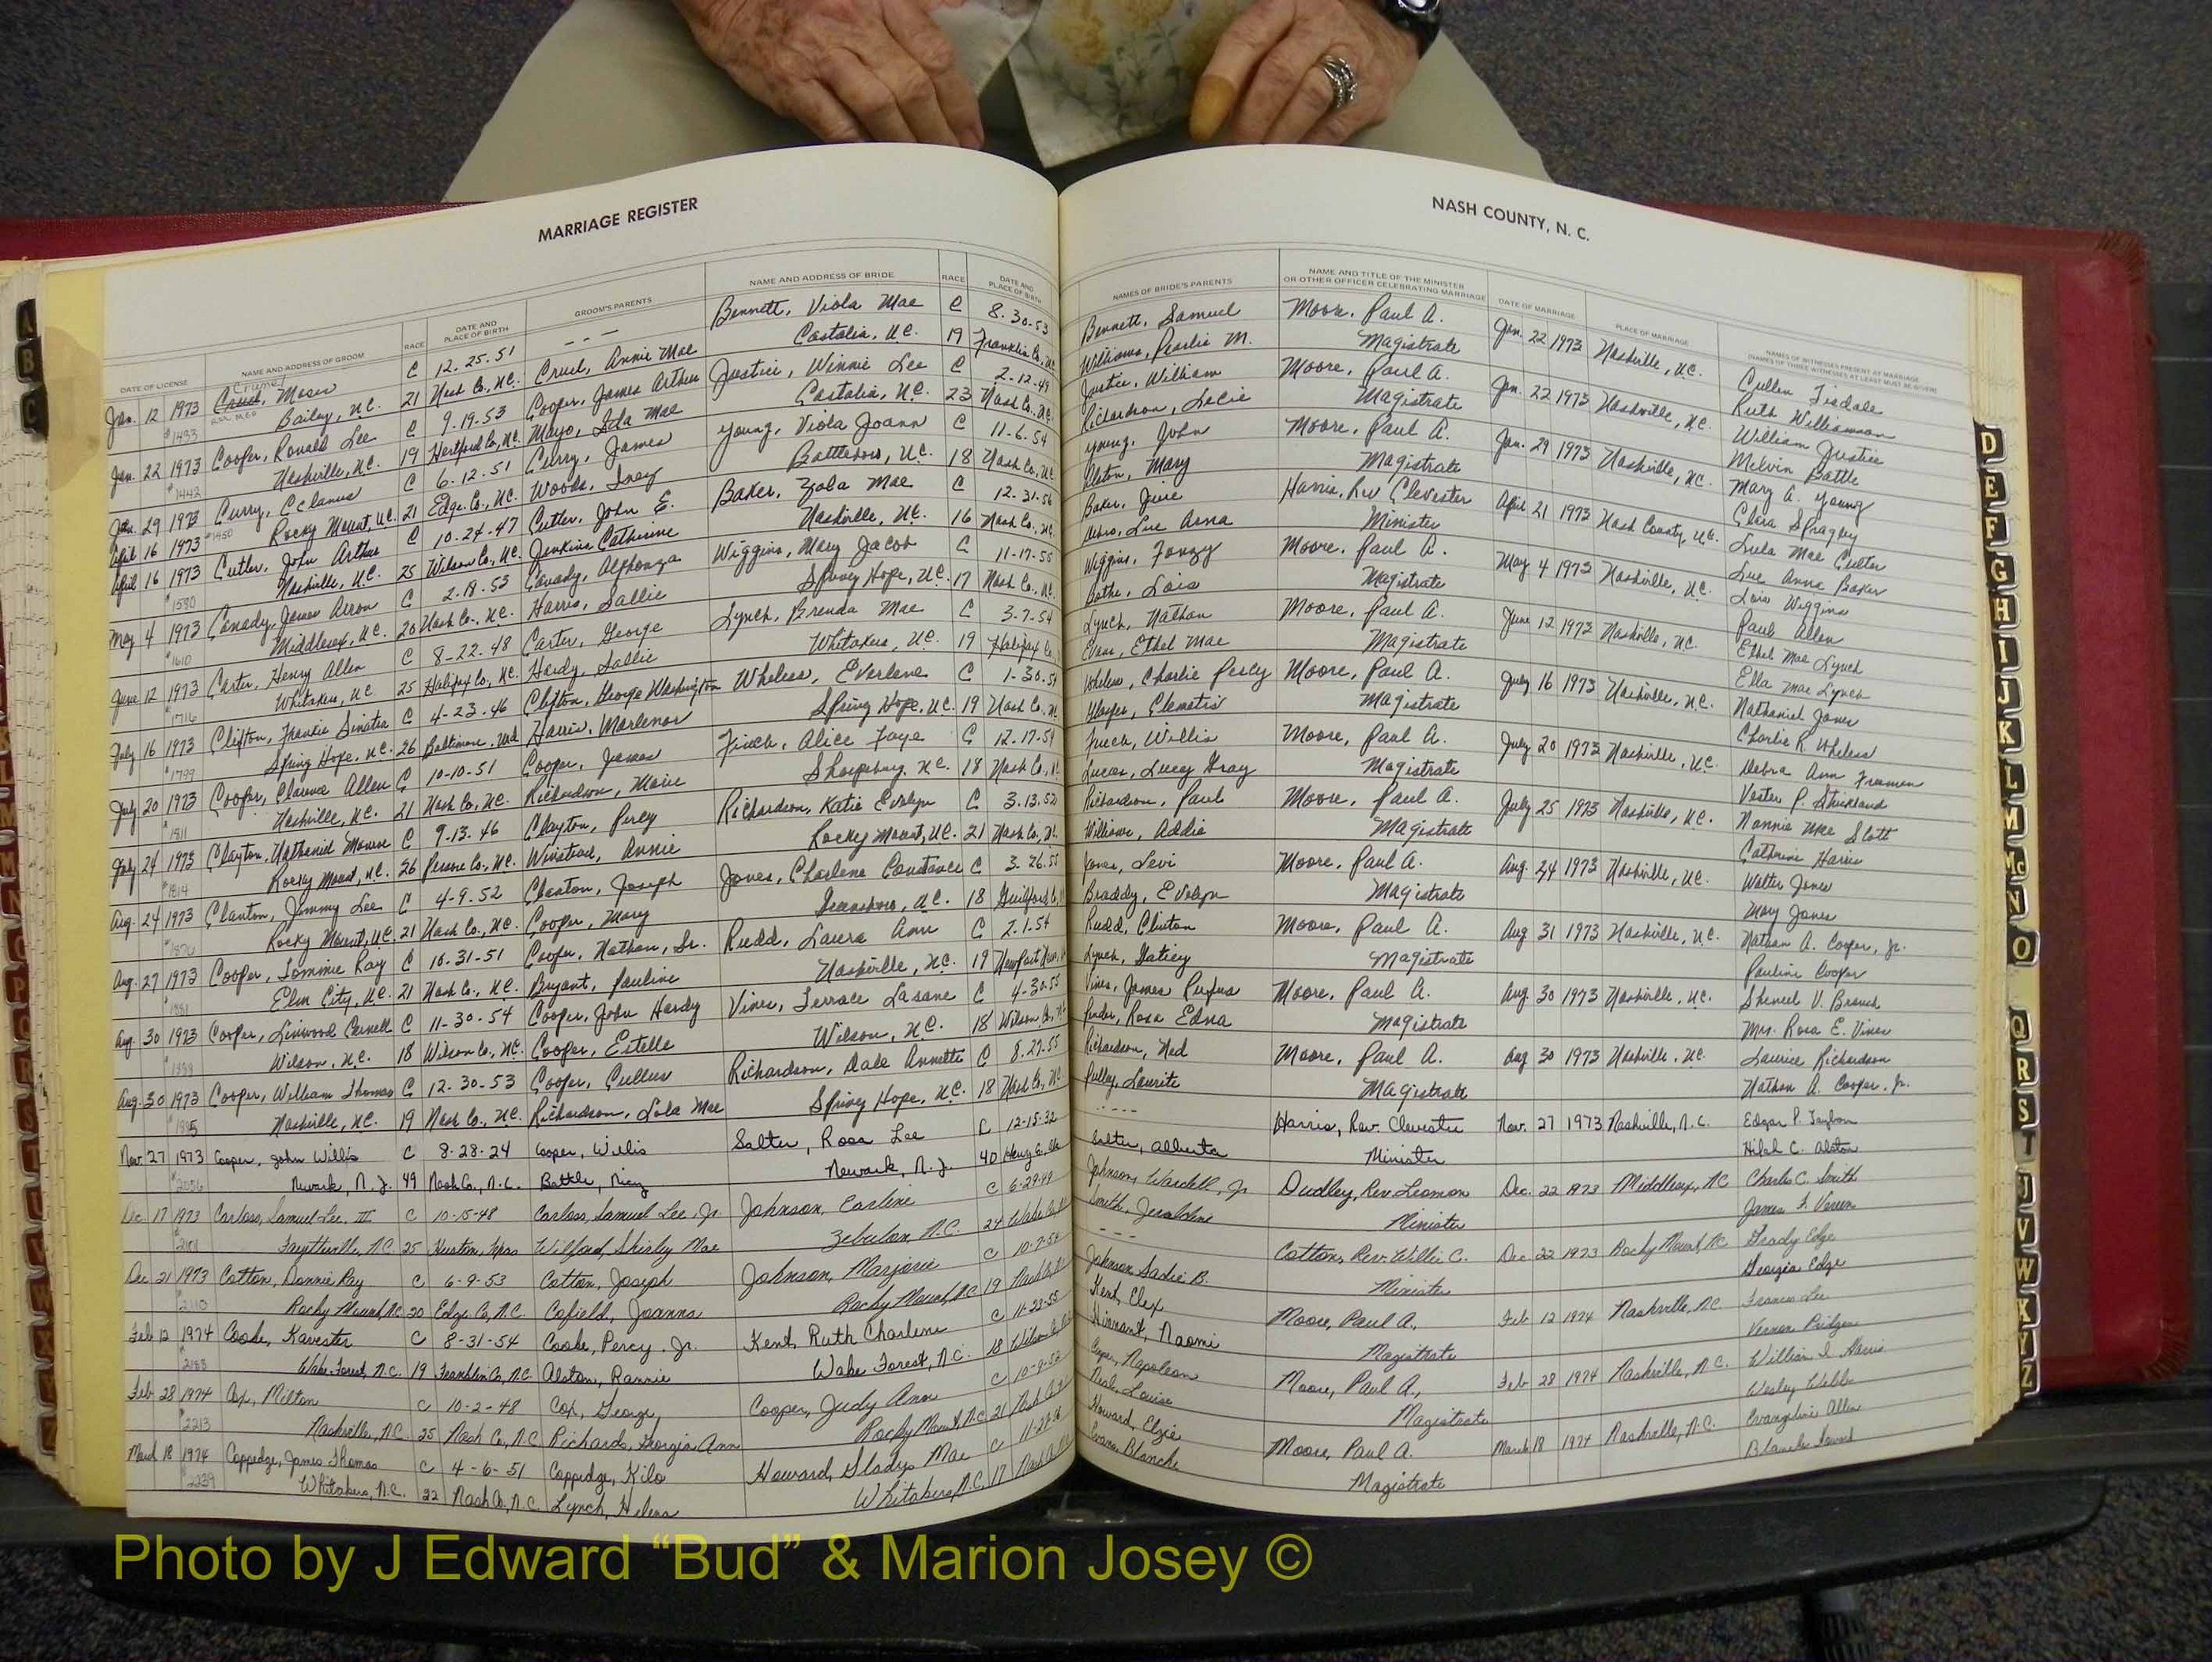 MARRIAGE REGISTER
NASH COUNTY, N. C.
DATE OF LICENSE NAME AND ADDRESS OF GROOM RACE DATE AND PLACE OF BIRTH GROOM'S PARENTS NAME AND ADDRESS OF BRIDE RACE DATE AND PLACE OF BIRTH
NAMES OF BRIDE'S PARENTS NAME AND TITLE OF THE MINISTER OR OTHER OFFICER CELEBRATING MARRIAGE DATE OF MARRIAGE PLACE OF MARRIAGE NAMES OF WITNESSES PRESENT AT MARRIAGE
Jan. 12 1973 Moses C 12-25-51 -- Bennett, Viola Mae C 8-30-53
#1433 Bailey, N.C. 21 Nash Co., N.C. Cruel, Annie Mae Castalia, N.C. 19 Franklin Co.
Jan. 22 1973 Cooper, Ronald Lee C 9-19-53 Cooper, James Arthur Justice, Winnie Lee C 2-12-49
#1442 Nashville, N.C. 19 Hertford Co., N.C. Mayo, Ida Mae Castalia, N.C. 23 Nash Co., N.C.
Jan. 29 1973 Curry, C 6-12-51 Curry, James Young, Viola Joann C 11-6-54
#1450 Rocky Mount, N.C. 21 Edge. Co., N.C. Woods, Inez Battleboro, N.C. 18 Nash Co., N.C.
April 16 1973
April 16 1973 Cutler, John Arthur C 10-24-47 Cutler, John E. Baker, Zola Mae C 12-31-56
#1580 Nashville, N.C. 25 Wilson Co., N.C. Jenkins Catherine Nashville, N.C. 16 Nash Co., N.C.
May 4 1973 Canady, James Arron C 2-18-53 Canady, Alphonza Wiggins, Mary Jacob C 11-17-55
#1610 Middlesex, N.C. 20 Nash Co., N.C. Harris, Sallie Spring Hope, N.C. 17 Nash Co., N.C.
June 12 1973 Carter, Henry Allen C 8-22-48 Carter, George Lynch, Brenda Mae C 3-7-54
#1716 Whitakers, N.C. 25 Halifax Co., N.C. Hardy, Sallie Whitakers, N.C. 19 Halifax Co.
July 16 1973 Clifton, Frankie Sinatra C 4-23-46 Clifton, George Washington Wheless, Everlene C 1-30-54
#1799 Spring Hope, N.C. 26 Baltimore, Md. Harris, Marlenor Spring Hope, N.C. 19 Nash Co.
July 20 1973 Cooper, Clarence Allen C 10-10-51 Cooper, James Finch, Alice Faye C 12-17-54
#1811 Nashville, N.C. 21 Nash Co., N.C. Richardson, Marie Sharpsburg, N.C. 18 Nash Co.
July 24 1973 Clayton, Nathaniel Monroe C 9-13-46 Clayton, Percy Richardson, Katie Evelyn C 3-13-52
#1814 Rocky Mount, N.C. 26 Person Co., N.C. Winstead, Annie Rocky Mount, N.C. 21 Nash Co.
Aug. 24 1973 Clanton, Jimmy Lee C 4-9-52 Clanton, Joseph Jones, Charlene Constance C 3-26-55
#1870 Rocky Mount, N.C. 21 Nash Co., N.C. Cooper, Mary Greensboro, N.C. 18 Guilford Co.
Aug. 27 1973 Cooper, Tommie Ray C 10-31-51 Cooper, Nathan, Sr. Rudd, Laura Ann C 2-1-54
#1881 Elm City, N.C. 21 Nash Co., N.C. Bryant, Pauline Nashville, N.C. 19 Newport News
Aug. 30 1973 Cooper, Linwood Carnell C 11-30-54 Cooper, John Hardy Vines, Terrace Lasane C 4-30-55
Wilson, N.C. 18 Wilson Co., N.C. Cooper, Estelle Wilson, N.C. 18 Wilson Co.
Aug. 30 1973 Cooper, William Thomas C 12-30-53 Cooper, Cullus Richardson, Dale Annette C 8-27-55
Nashville, N.C. 19 Nash Co., N.C. Richardson, Lola Mae Spring Hope, N.C. 18 Nash Co., N.C.
Nov. 27 1973 Cooper, John Willis C 8-28-24 Cooper, Willis Salter, Rosa Lee C 12-15-32
#2056 Newark, N.J. 49 Nash Co., N.C. Battle, Newark, N.J. 40
Dec. 17 1973 Carloss, Samuel Lee, III C 10-15-48 Carloss, Samuel Lee, Jr. Johnson, Earline C 6-29-49
Fayetteville, N.C. 25 Houston, Texas Wilford, Shirley Mae Zebulon, N.C. 24 Wake Co.
Dec. 21 1973 Cotton, Donnie Ray C 6-9-53 Cotton, Joseph Johnson, Marjorie C 10-7-54
#2110 Rocky Mount, N.C. 20 Edge Co, N.C. Cofield, Joanna Rocky Mount, N.C. 19 Nash Co.
Feb 12 1974 Cooke, Karester C 8-31-54 Cooke, Percy Jr. Kent, Ruth Charlene C 11-23-55
#2183 Wake Forest, N.C. 19 Franklin Co, N.C. Alston, Rannie Wake Forest, N.C. 18 Wilson Co.
Feb 28 1974 Cox, Milton C 10-2-48 Cox, George, Cooper, Judy Ann C 10-9-52
#2213 Nashville, N.C. 25 Nash Co, N.C. Richards, Georgia Ann Rocky Mount, N.C. 21 Nash Co.
March 18 1974 Coppedge, James Thomas C 4-6-51 Coppedge, Kilo Howard, Gladys Mae C 11-27-56
#2239 Whitakers, N.C. 22 Nash Co, N.C. Lynch, Helena Whitakers, N.C. 17 Nash Co.
Bennett, Samuel Moore, Paul A. Jan. 22 1973 Nashville, N.C. Cullen Tisdale
Williams, Pearlie M. Magistrate Ruth Williamson
Justice, William Moore, Paul A. Jan. 22 1973 Nashville, N.C. William Justice
Richardson, Magistrate Melvin Battle
Young, John Moore, Paul A. Jan. 29 1973 Nashville, N.C. Mary A. Young
Alston, Mary Magistrate Clara Spragley
Baker, Harris, Rev Clevester April 21 1973 Nash County, N.C. Lula Mae Cutler
Lue Anna Minister Lue Anna Baker
Wiggins, Fonzy Moore, Paul A. May 4 1973 Nashville, N.C. Lois Wiggins
Lois Magistrate Paul Allen
Lynch, Nathan Moore, Paul A. June 12 1973 Nashville, N.C. Ethel Mae Lynch
Evans, Ethel Mae Magistrate Ella Mae Lynch
Wheless, Charlie Percy Moore, Paul A. July 16 1973 Nashville, N.C. Nathaniel Jones
Clematis Magistrate Charlie R. Wheless
Finch, Willis Moore, Paul A. July 20 1973 Nashville, N.C. Debra Ann Freeman
Lucas, Lucy Gray Magistrate Vester P. Strickland
Richardson, Paul Moore, Paul A. July 25 1973 Nashville, N.C. Nannie Mae Scott
Williams, Addie Magistrate Catherine Harris
Jones, Levi Moore, Paul A. Aug. 24 1973 Nashville, N.C. Walter Jones
Braddy, Evelyn Magistrate Mary Jones
Rudd, Clinton Moore, Paul A. Aug 31 1973 Nashville, N.C. Nathan A. Cooper, Jr.
Lynch, Magistrate Pauline Cooper
Vines, James Rufus Moore, Paul A. Aug. 30 1973 Nashville, N.C. V. Branch
Pender, Rosa Edna Magistrate Mrs. Rosa E. Vines
Richardson, Ned Moore, Paul A. Aug 30 1973 Nashville, N.C. Laurice Richardson
Pulley, Laurite Magistrate Nathan A. Cooper, Jr.
---- Harris, Rev. Clevester Nov. 27 1973 Nashville, N.C. Edgar P.
Salter, Alberta Minister C. Alston
Johnson, Wardell, Jr Dudley, Rev. Leamon Dec. 22 1973 Middlesex, N.C. Charles C. Smith
Smith, Jeraldine Minister James F. Vereen
--- Cotton, Rev. Willie C. Dec 22 1973 Rocky Mount, N.C. Grady Edge
Johnson Sadie B. Minister Georgia Edge
Kent, Elex Moore, Paul A., Feb 12 1974 Nashville, N.C. Frances Lee
Hinnant, Naomi Magistrate Vernon Pridgen
Cooper, Napoleon Moore, Paul A., Feb 28 1974 Nashville, N.C. William I. Harris
Neal, Louise Magistrate Wesley Webb
Howard, Elzie Moore, Paul A. March 18 1974 Nashville, N.C. Evangeline Allen
Evans, Blanche Magistrate Blanche Howard
A
B
C
D
E
F
G
H
I
J
K
L
M
Mc
N
O
Q
R
S
T
U
V
W
X
Y
Z
Photo by J Edward “Bud” & Marion Josey ©